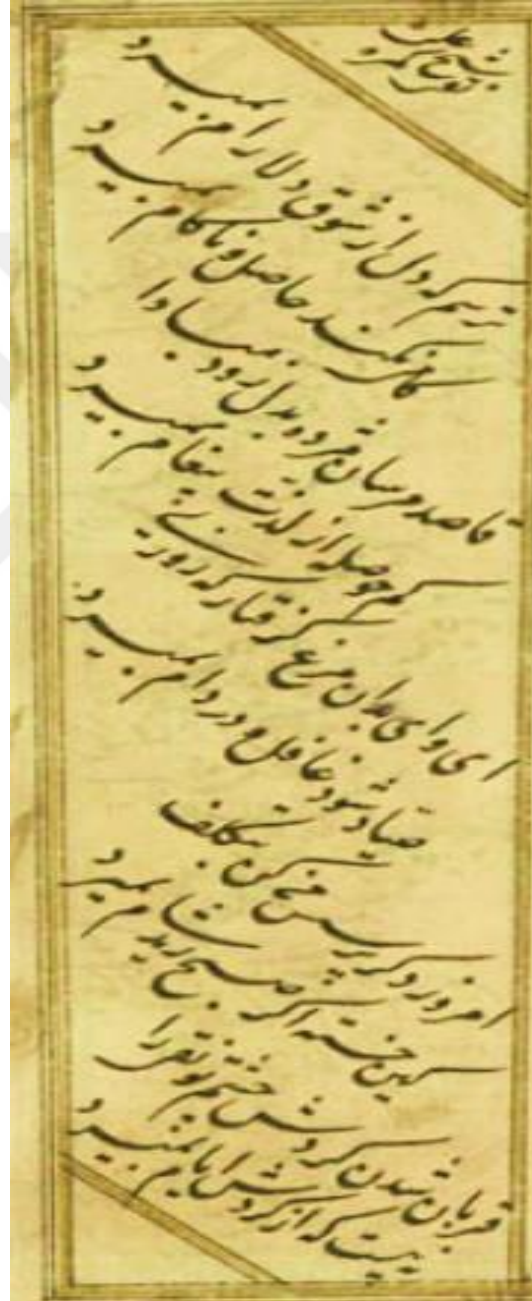 شیخ علی
نقی کمره
ترسم که دل از شوق دلارام بمیرد
کامی نکند حاصل و ناکام بمیرد
قاصد مرسان مژده بدل زود مبادا
کم حوصله از لذت پیغام بمیرد
ای وای بدان مرغ گرفتار که روزی
صیاد شود غافل و در دام بمیرد
امروز دگر پرسش من کن بتکلف
کین خسته اگر صبح زید شام بمیرد
قربان شدن گردش چشم تو نقی را
که از گردش ایام بمیرد